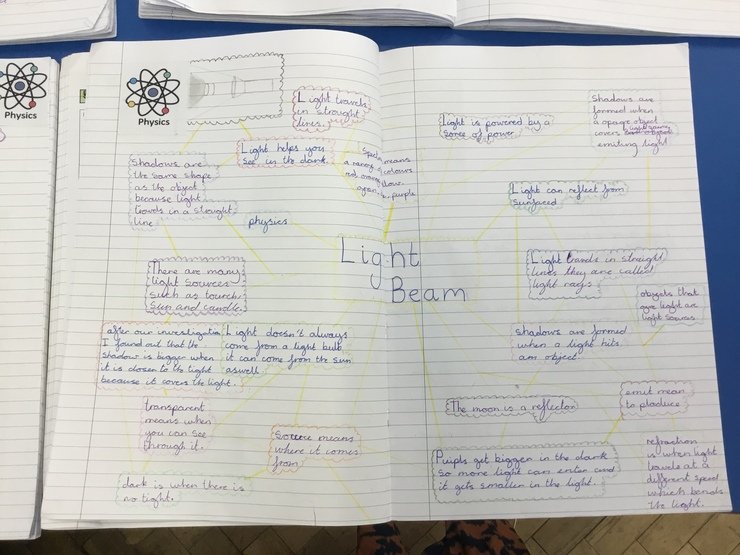 Physics
Physics
Light travels
in straight
lines.
Light helps you
see in the dark.
means
colours
Shadows are
the same shape
as the object
because light
travels in a straight
line
physics
Light
Beam
There are many
light sources
such as tourch,
sun and candle.
after our investigation
I found out that the
shadow is bigger when
it is closer to the light
because it covers the light.
Light doesn't always
come from a light bulb
it can come from the sun
aswell.
transparent
means when
you can see
through it.
Source means
where it comes
from
dark is when there is
no light.
Light is powered by a
of power
Shadows are
formed when
a opaque object
covers
light source
emiting light
Light can reflect from
Light travels in straight
lines they are called
light rays
objects that
give light are
light sources
shadows are formed
when a light hits
an object.
The moon is a reflector
emit mean
to produce
Pulpls get bigger in the dark
so more light can enter and
it gets smaller in the light.
refraction
is when light
travels at a
different speed
which bends
the light.